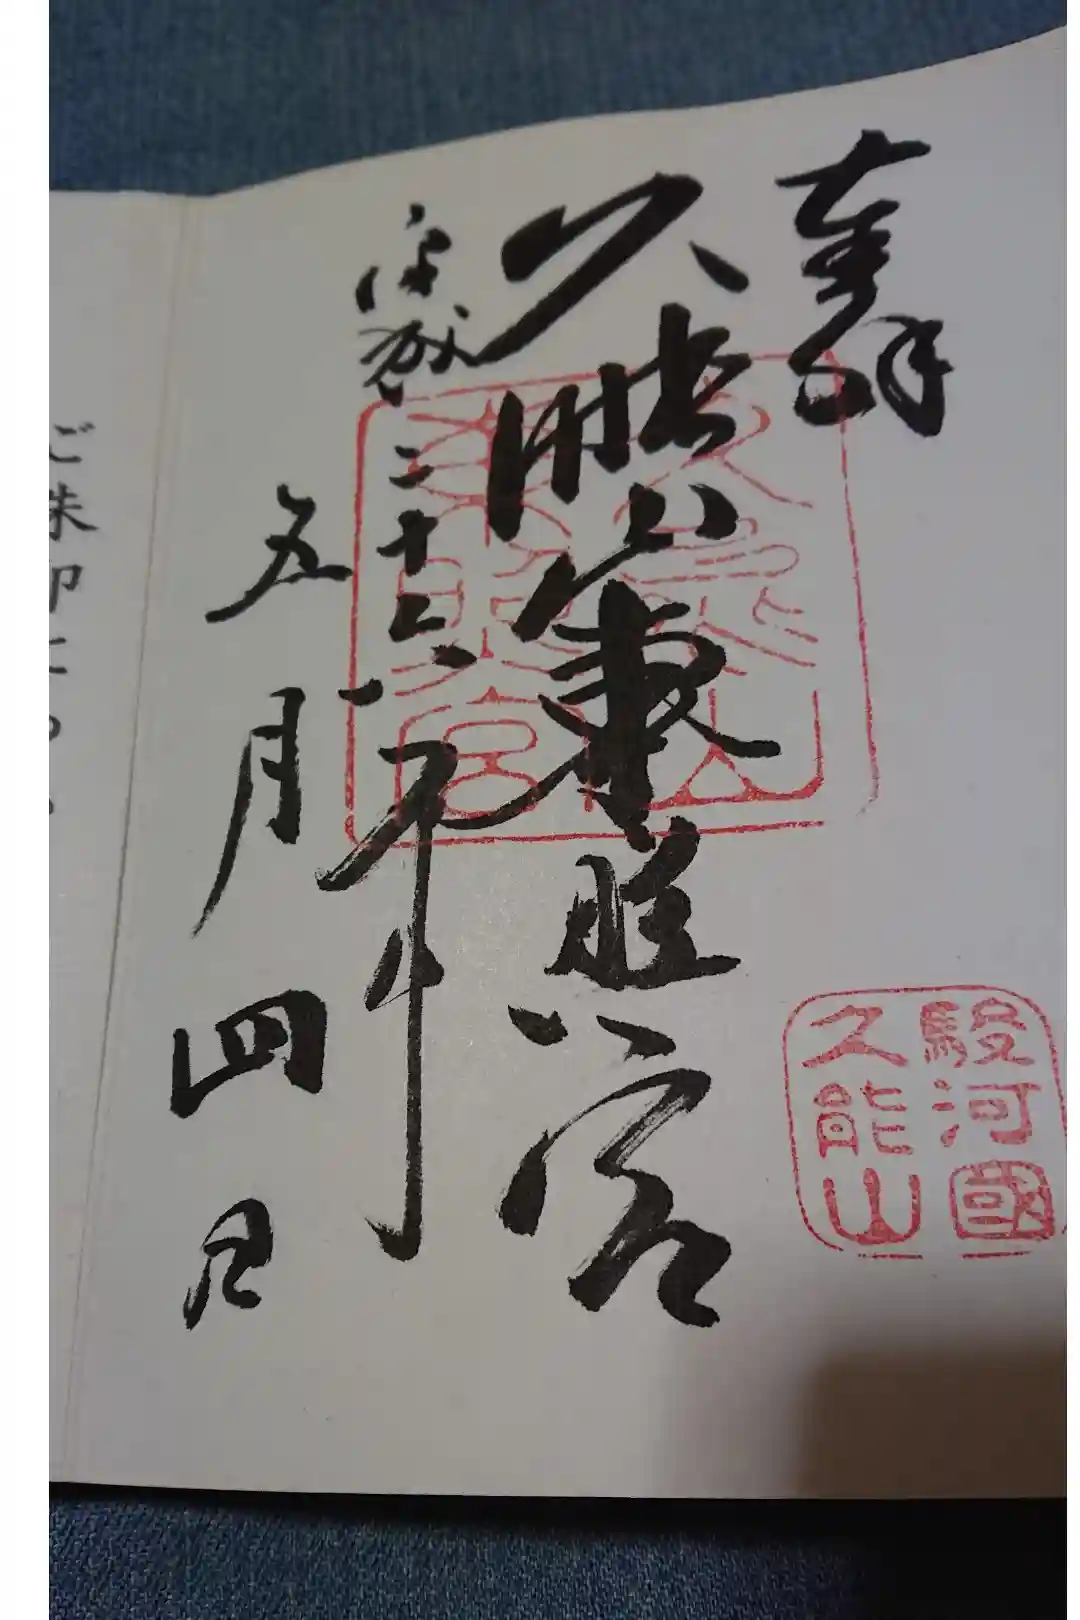 奉拝
駿河國
久能山
久能山東照宮
久能山
東照宮
平成二十六年
五月四日
ご朱印に